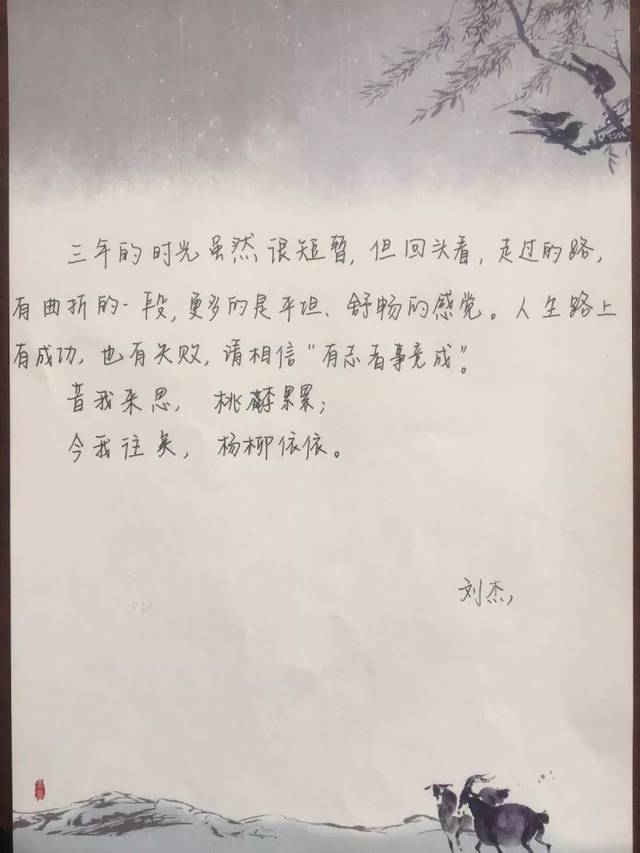 三年的时光虽然很短暂，但回头看，走过的路，
有曲折的一段，更多的是平坦、舒畅的感觉。人生路上
有成功，也有失败，请相信“有志者事竟成”。
昔我来思，桃李累累；
今我往矣，杨柳依依。
刘杰